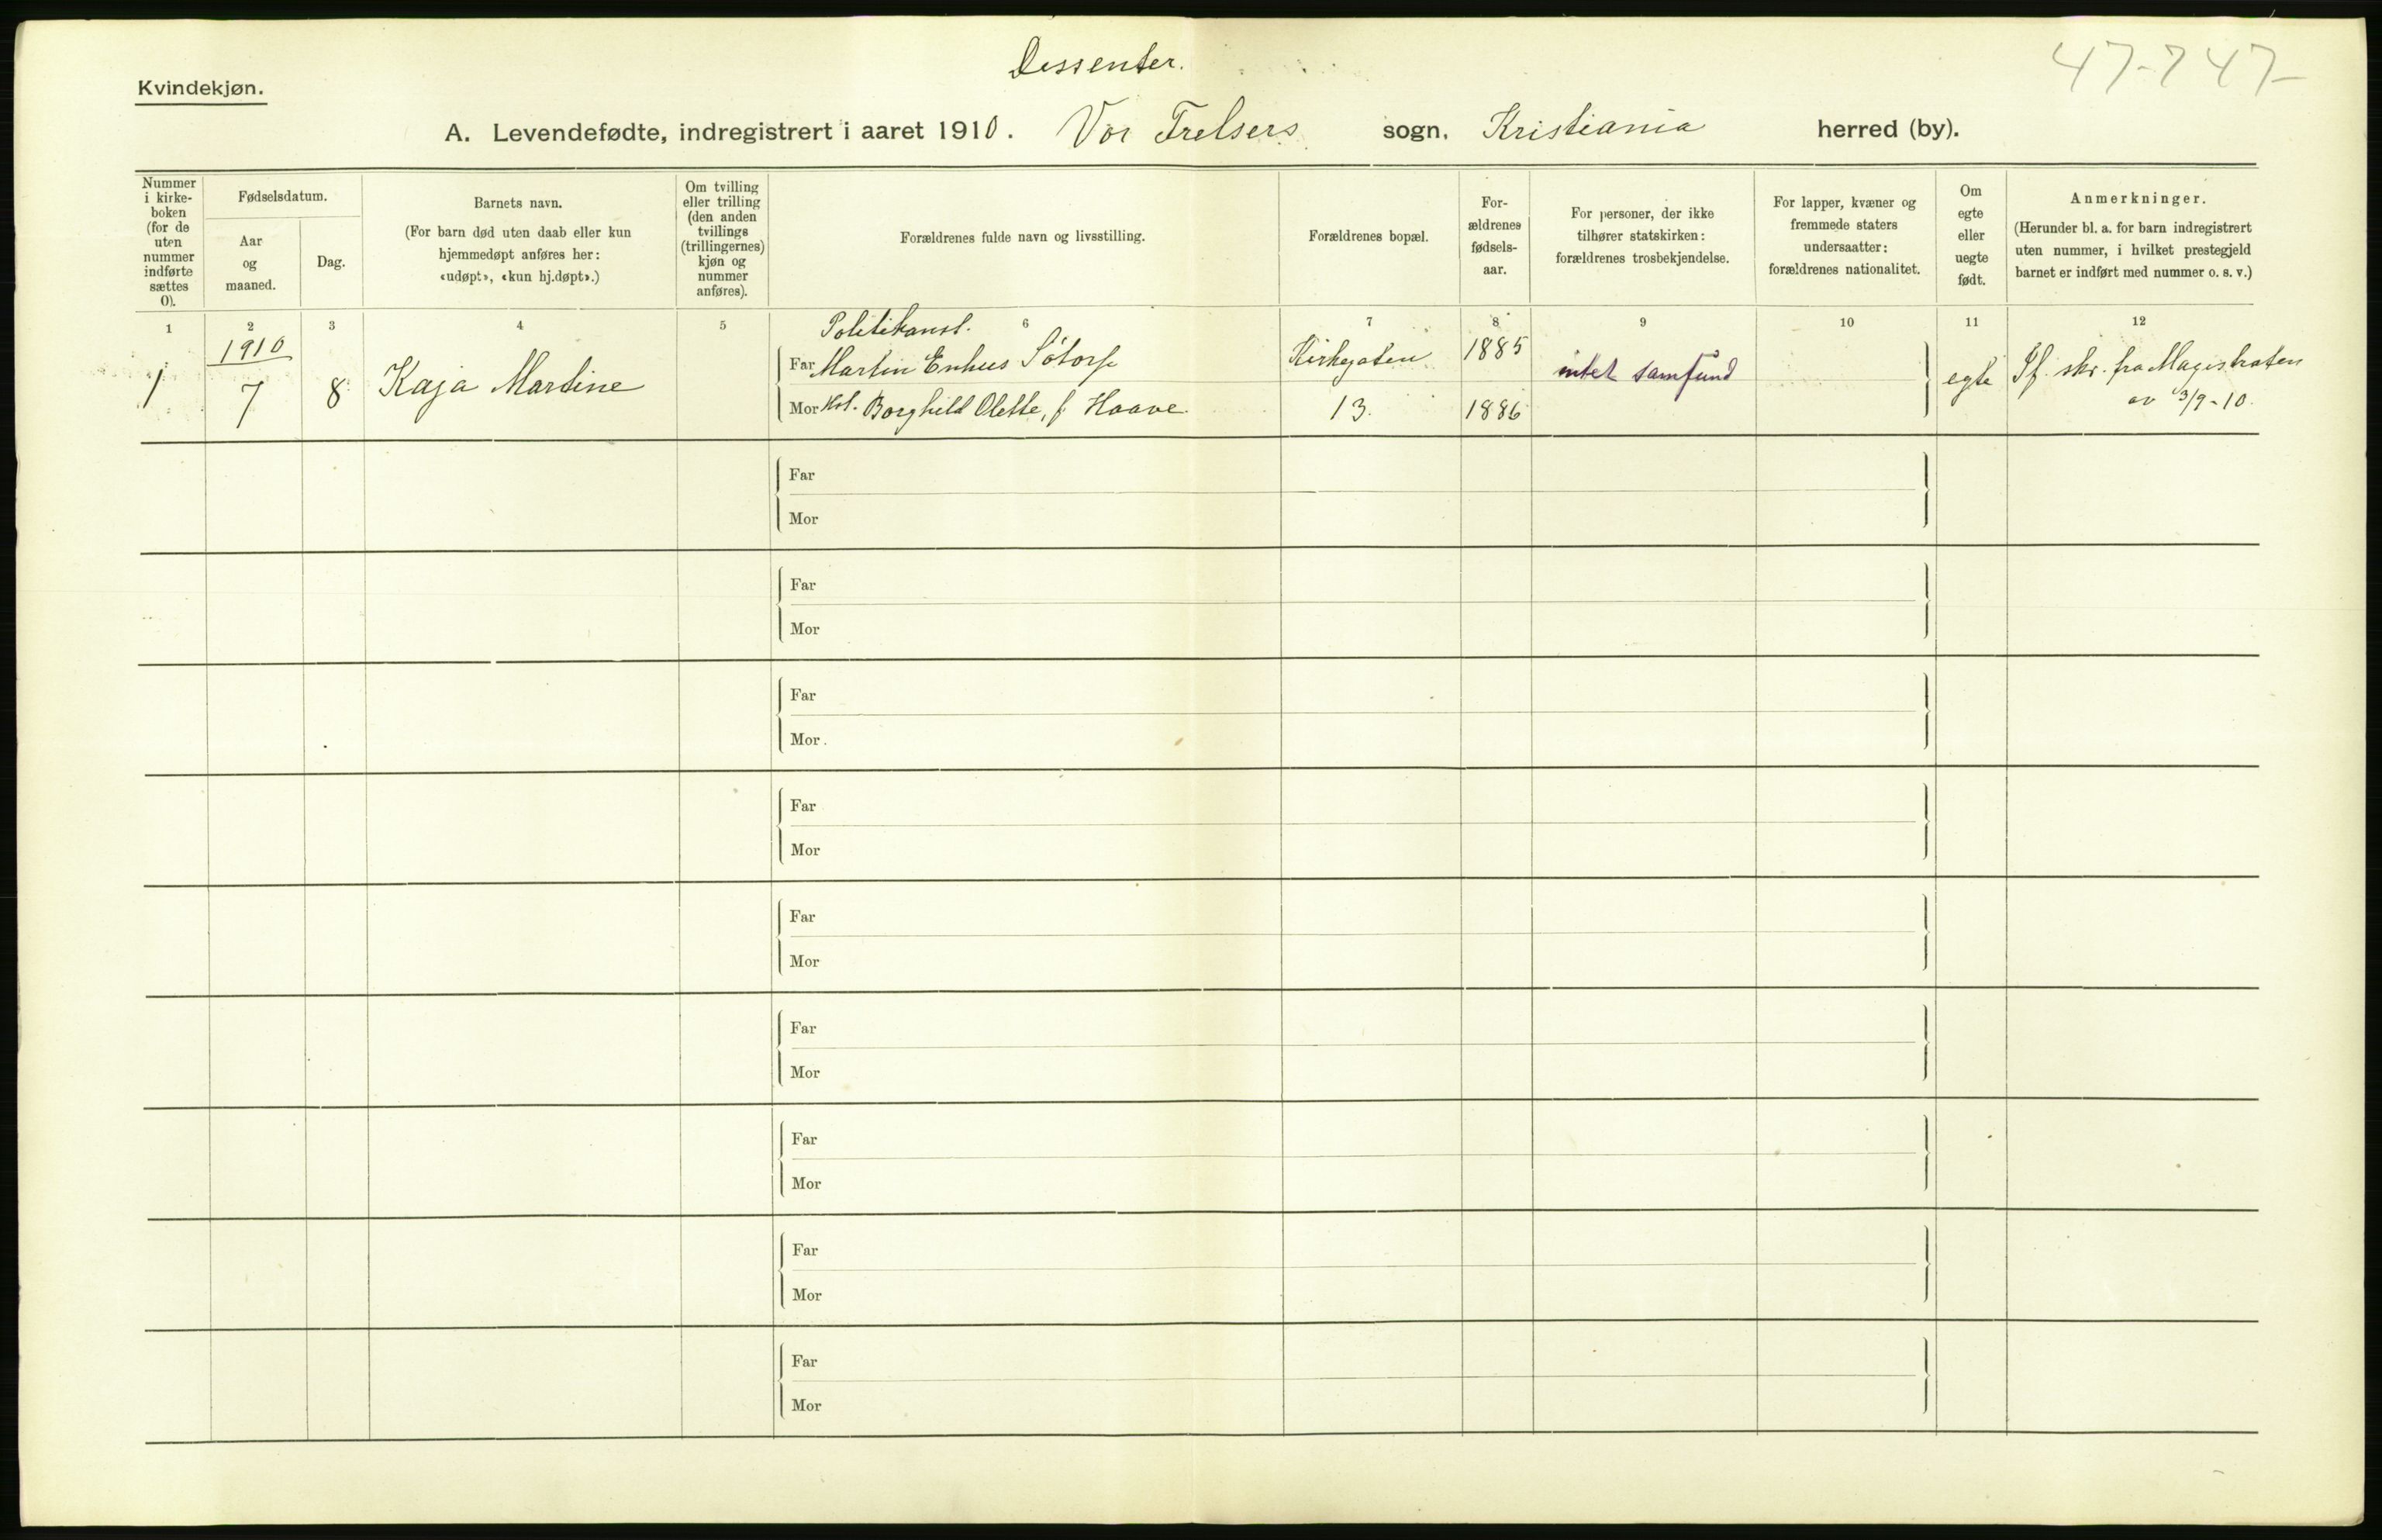 Dessenter.
47-747-
Kvindekjøn.
A. Levendefødte, indregistrert i aaret 1910. Vor Frelsers sogn, Kristiania herred (by).
Nummer
i kirke-
boken
(for de
uten
nummer
indførte
sættes
0).
Fødselsdatum.
Aar
og
maaned.
Dag.
Barnets navn.
(For barn død uten daab eller kun
hjemmedøpt anføres her:
«udøpt», «kun hj.døpt».)
Om tvilling
eller trilling
(den anden
tvillings
(trillingernes)
kjøn og
nummer
anføres).
Forældrenes fulde navn og livsstilling.
Forældrenes bopæl.
For-
ældrenes
fødsels-
aar.
For personer, der ikke
tilhører statskirken:
forældrenes trosbekjendelse.
For lapper, kvæner og
fremmede staters
undersaatter:
forældrenes nationalitet.
Om
egte
eller
uegte
født.
Anmerkninger.
(Herunder bl. a. for barn indregistrert
uten nummer, i hvilket prestegjeld
barnet er indført med nummer o. s. v.)
1 2 3 4 5 6 7 8 9 10 11 12
1 1910
7 8 Kaja Martine
Politikonst.
Far Martin Enhus
Mor Hst. Borghild Olette, f. Haave.
Kirkegaten
13.
1885
1886
intet samfund
egte
Jf. skr. fra Magistraten
av 3/9-10.
Far
Mor
Far
Mor
Far
Mor.
Far
Mor
Far
Mor
Far
Mor
Far
Mor
Far
Mor
Far
Mor